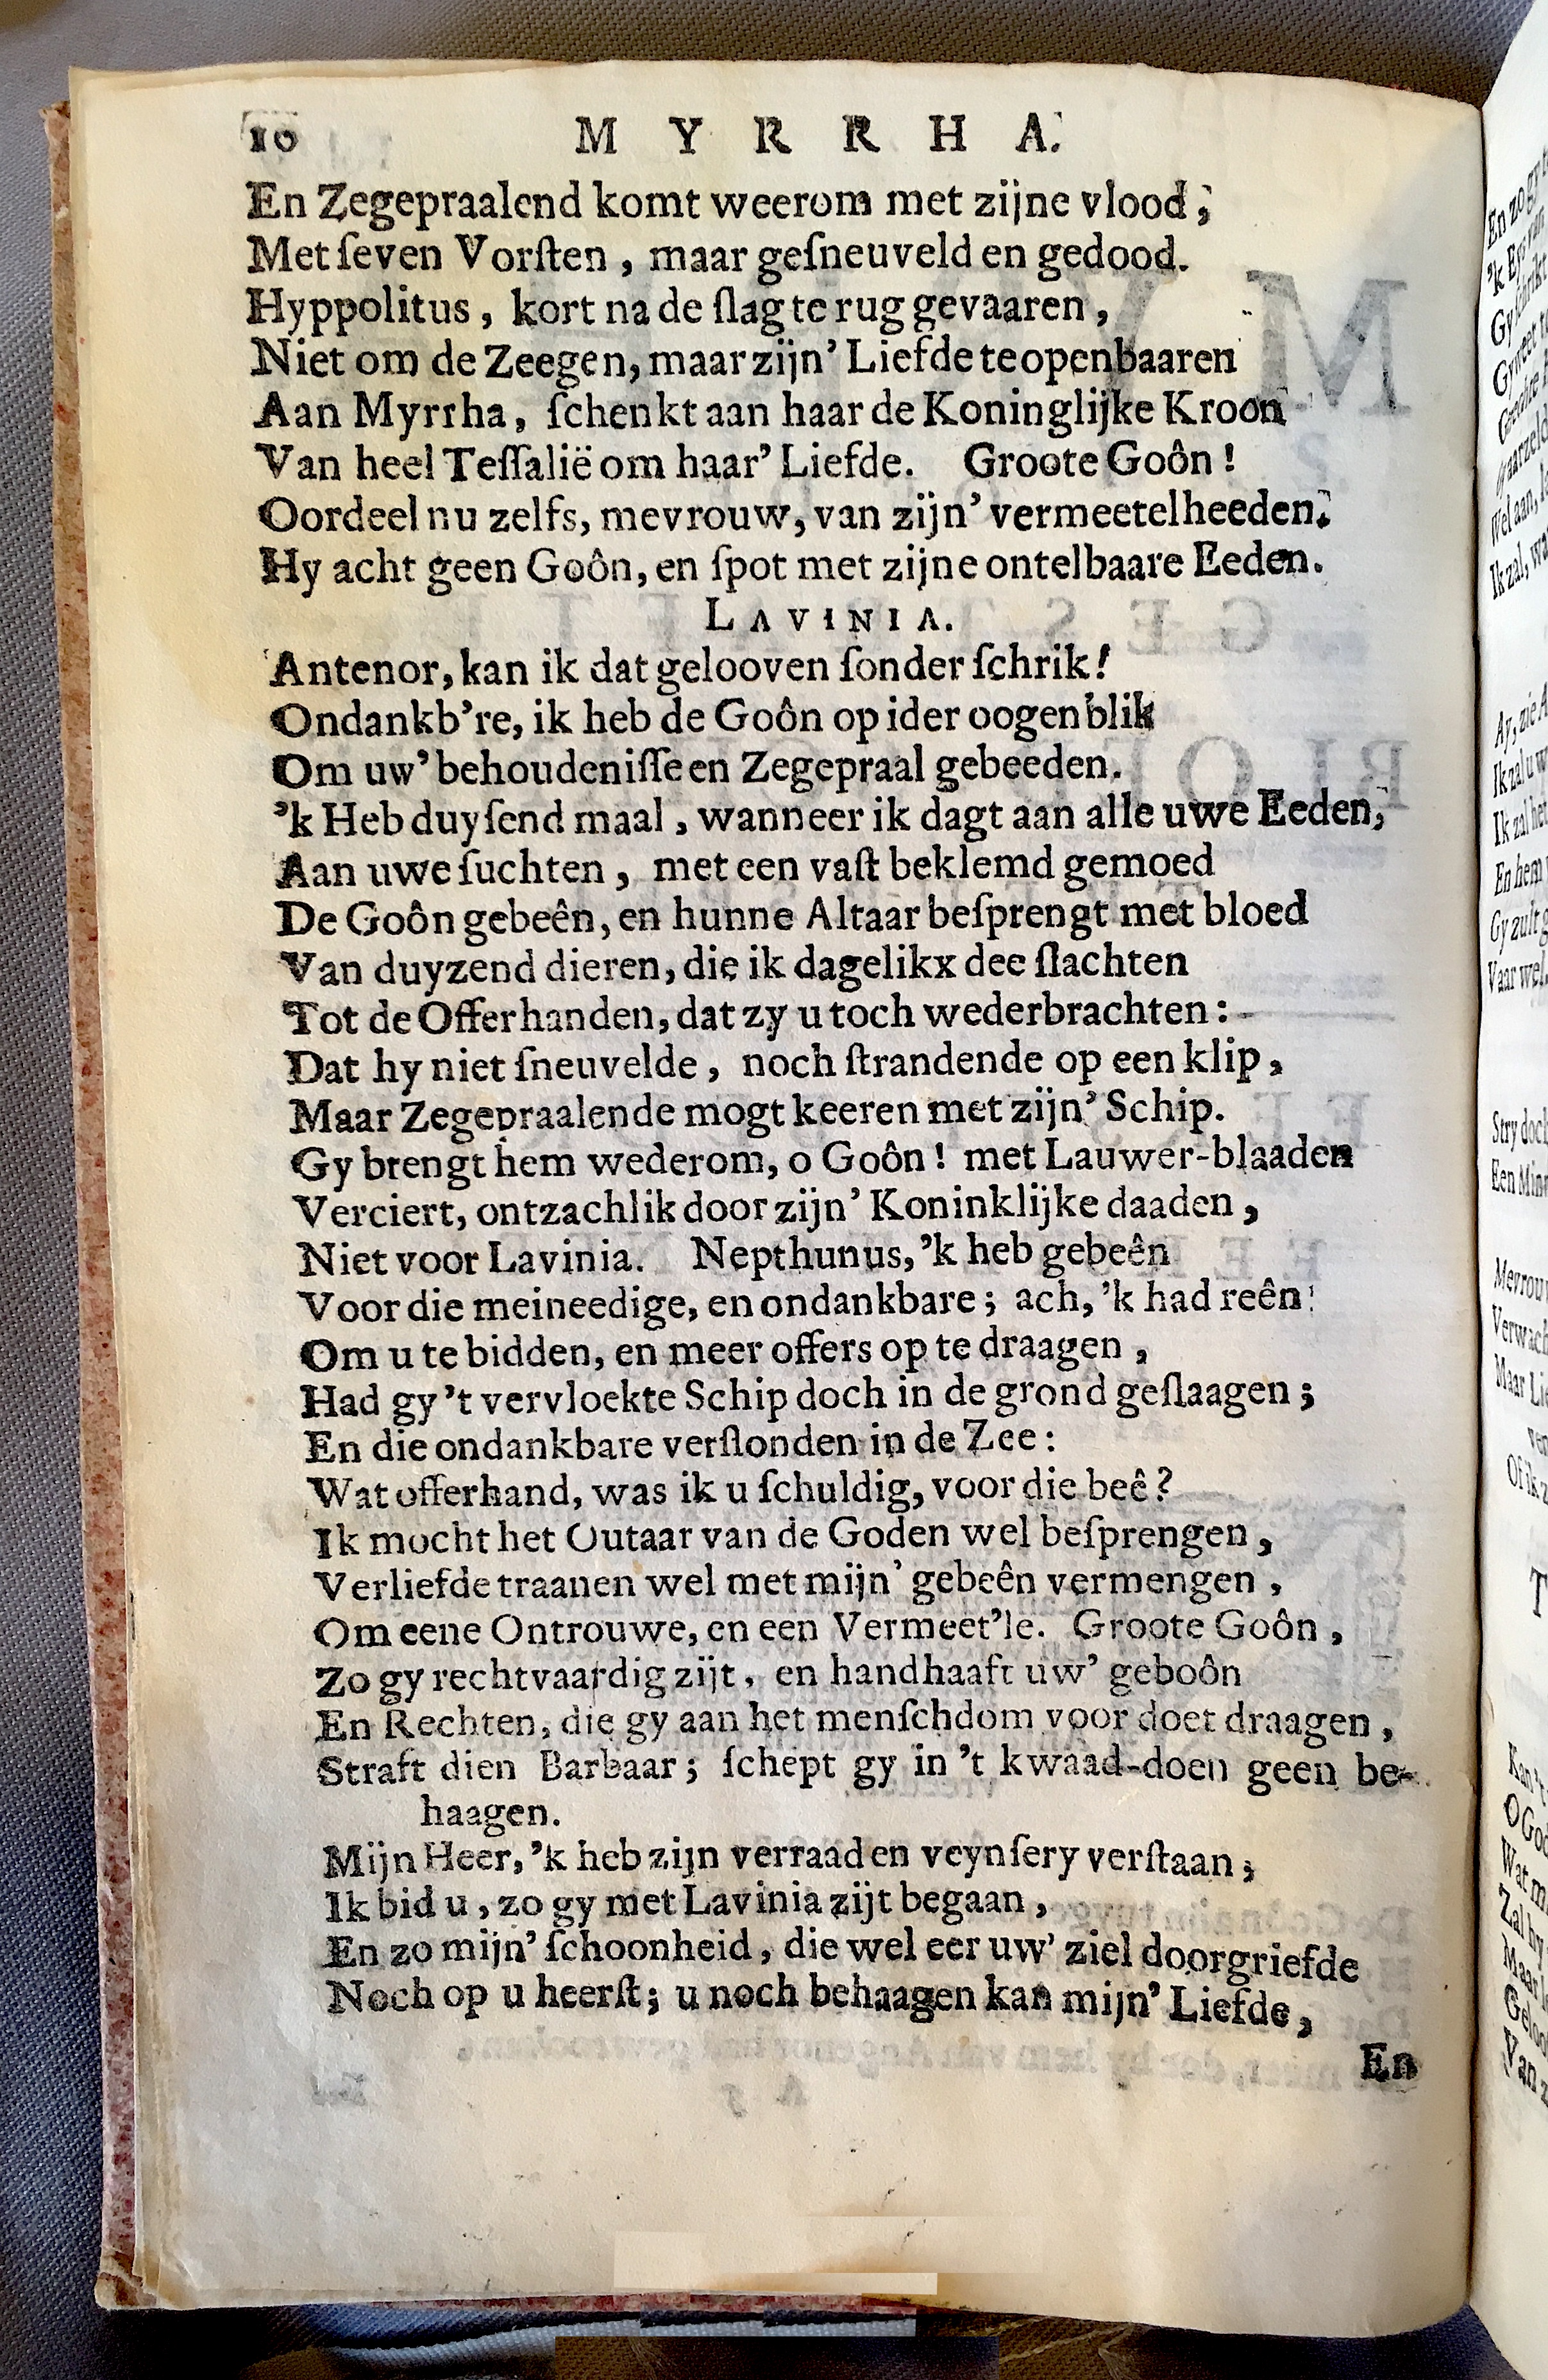 10 MYRRHA.
En Zegepraalend komt weerom met zijne vlood;
Met ſeven Vorſten, maar geſneuveld en gedood.
Hyppolitus, kort na de ſlag te rug gevaaren,
Niet om de Zeegen, maar zijn' Liefde te openbaaren
Aan Myrrha, ſchenkt aan haar de Koninglijke Kroon
Van heel Teſſalië om haar' Liefde. Groote Goôn!
Oordeel nu zelfs, mevrouw, van zijn' vermeetelheeden.
Hy acht geen Goôn, en ſpot met zijne ontelbaare Eeden.
LAVINIA.
Antenor, kan ik dat gelooven ſonder ſchrik!
Ondankb're, ik heb de Goôn op ider oogenblik
Om uw' behoudeniſſe en Zegepraal gebeeden.
'k Heb duyſend maal, wanneer ik dagt aan alle uwe Eeden,
Aan uwe ſuchten, met een vaſt beklemd gemoed
De Goôn gebeên, en hunne Altaar beſprengt met bloed
Van duyzend dieren, die ik dagelikx dee ſlachten
Tot de Offerhanden, dat zy u toch wederbrachten:
Dat hy niet ſneuvelde, noch ſtrandende op een klip,
Maar Zegepraalende mogt keeren met zijn' Schip.
Gy brengt hem wederom, o Goôn! met Lauwer-blaaden
Verciert, ontzachlik door zijn' Koninklijke daaden,
Niet voor Lavinia. Nepthunus, 'k heb gebeên
Voor die meineedige, en ondankbare; ach, 'k had reên
Om u te bidden, en meer offers op te draagen,
Had gy 't vervloekte Schip doch in de grond geſlaagen;
En die ondankbare verſlonden in de Zee:
Wat offerhand, was ik u ſchuldig, voor die beê?
Ik mocht het Outaar van de Goden wel beſprengen,
Verliefde traanen wel met mijn' gebeên vermengen,
Om eene Ontrouwe, en een Vermeet'le. Groote Goôn,
Zo gy rechtvaardig zijt, en handhaaft uw' geboôn
En Rechten, die gy aan het menſchdom voor doet draagen,
Straft dien Barbaar; ſchept gy in 't kwaad-doen geen be-
haagen.
Mijn Heer, 'k heb zijn verraad en veynſery verſtaan;
Ik bid u, zo gy met Lavinia zijt begaan,
En zo mijn' ſchoonheid, die wel eer uw' ziel doorgriefde
Noch op u heerſt; u noch behaagen kan mijn' Liefde,
En